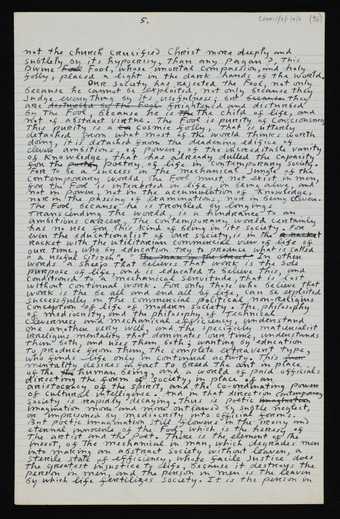 5.
not the church crucified Christ more deeply and
subtlely by its hypocrisy, than any pagan?, This
Divine Fool, whose immortal compassion, and holy
folly, placed a light in the dark hands of the world.
Our society has rejected the Fool, not only
because he cannot be exploited, not only because they
judge everything by its usefulness; but because they
are frightened and disturbed
by the Fool, because he is the child of life, and
not of abstract virtue. The Fool is purity of consciousness
This purity is a cosmic folly. That is utterly
detached from what most of the world thinks worth
doing, it is detached from the deadening edifice of
clever ambitions, of power, of the understated vanity
of Knowledge, that has already dulled the capacity
for the poetry of life in contemporary society.
For to be a success in the mechanical jungle of the
contemporary world, the Fool must not exist in man,
for the Fool is interested in life, in being alive, and
not in power, not in the accumulation of Knowledge,
nor in the passing of examinations, nor in being clever.
The Fool, because he is troubled by longings
transcending the world, is a hindrance to an
ambitious career. The contemporary world certainly
has no use for this kind of being in its society. For
even the educationalist of our society, is in the
racket with the utilitarian commercial view of life of
our time, who by education try to produce what is called
a useful citizen. In other
words a sheep that believes that work is the sole
purpose of life, and is educated to believe this, and
conditioned to a mechanical servitude, that is lost
without continual work. For only those who believe that
work is the be all and end all of life, can be exploited
successfully in the commercial political, non-religious
conception of life of modern society. The philosophy
of mediocrity, and the philosophy of technical
cleverness and mechanical efficiency, understand
one another very well, and the specifically materialist
irreligious mentality that dominates our time understands
them both, and uses them both; wanting by education
to produce from them, the complete extravert type,
who finds life only in continual activity. This
mentality desires in fact to breed the ant in place
of the human being, and a world of paid officials
directing the form of society, in place of an
aristocracy of the spirit, and the co-ordinating power
of cultural intelligence. And in that direction contemporary
society is rapidly decaying, thus is poetic
imagination more and more outlawed by subtle neglect,
or imprisoned by mediocrity into official forms.
But poetic imagination still flowers in the irony and
eternal innocence of the Fool, which is the heresy of
the artist and the poet. There is the element of the
insect, of the mechanical in man, which degrades men
into making an abstract society without leaven, a
sterile state of efficiency, whose facile justice does
the greatest injustice to life, because it destroys the
person in man, and the person in men is the leaven
by which life fertilizes society. It is the person in